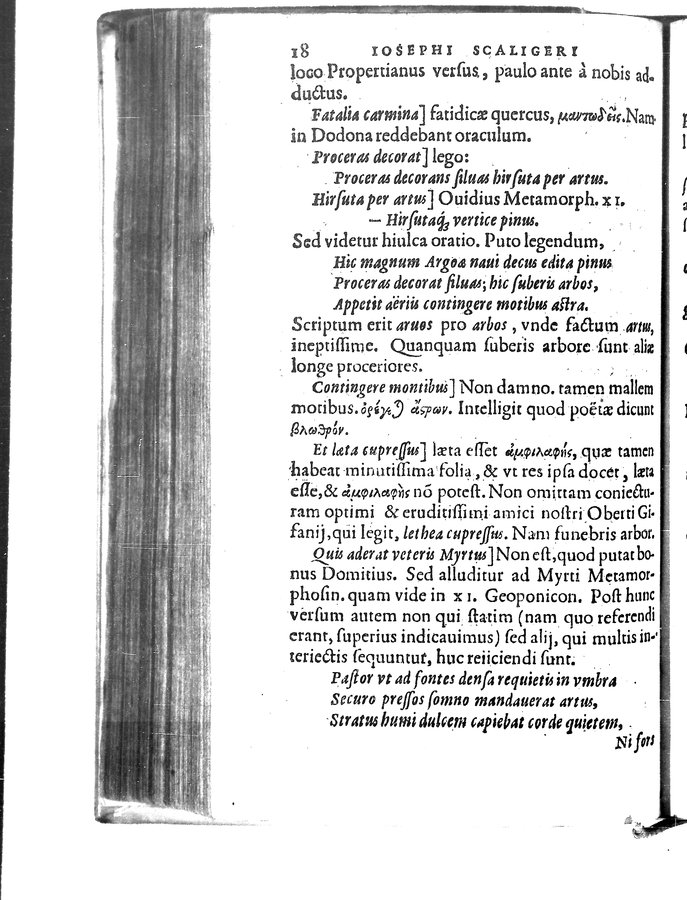 18 IOSEPHI SCALIGERI
loco Propertianus verſus, paulo ante à nobis ad-
ductus.
Fatalia carmina] fatidicæ quercus, μαντώδεις. Nam
in Dodona reddebant oraculum.
Proceras decorat] lego:
Proceras decorans ſiluas hirſuta per artus.
Hirſuta per artus] Ouidius Metamorph. XI.
— Hirſutaq́; vertice pinus.
Sed videtur hiulca oratio. Puto legendum,
Hic magnum Argoæ naui decus edita pinus
Proceras decorat ſiluas; hic ſuberis arbos,
Appetit aëriis contingere motibus aſtra.
Scriptum erit aruos pro arbos, vnde factum artus,
ineptiſſime. Quanquam ſuberis arbore ſunt aliæ
longe proceriores.
Contingere montibus] Non damno. tamen mallem
motibus. ὀρέγεται ἄστρων. Intelligit quod poëtæ dicunt
βλωθρόν.
Et læta cupreſſus] læta eſſet ἀμφιλαφής, quæ tamen
habeat minutiſſima folia, & vt res ipſa docet, læta
eſſe, & ἀμφιλαφὴς nō poteſt. Non omittam coniectu-
ram optimi & eruditiſſimi amici noſtri Oberti Gi-
fanij, qui legit, lethea cupreſſus. Nam funebris arbor.
Quis aderat veteris Myrtus] Non eſt, quod putat bo-
nus Domitius. Sed alluditur ad Myrti Metamor-
phoſin. quam vide in XI. Geoponicon. Poſt hunc
verſum autem non qui ſtatim (nam quo referendi
erant, ſuperius indicauimus) ſed alij, qui multis in-
teriectis ſequuntur, huc reiiciendi ſunt.
Paſtor vt ad fontes denſa requietis in vmbra
Securo preſſos ſomno mandauerat artus,
Stratus humi dulcem capiebat corde quietem,
Ni fors